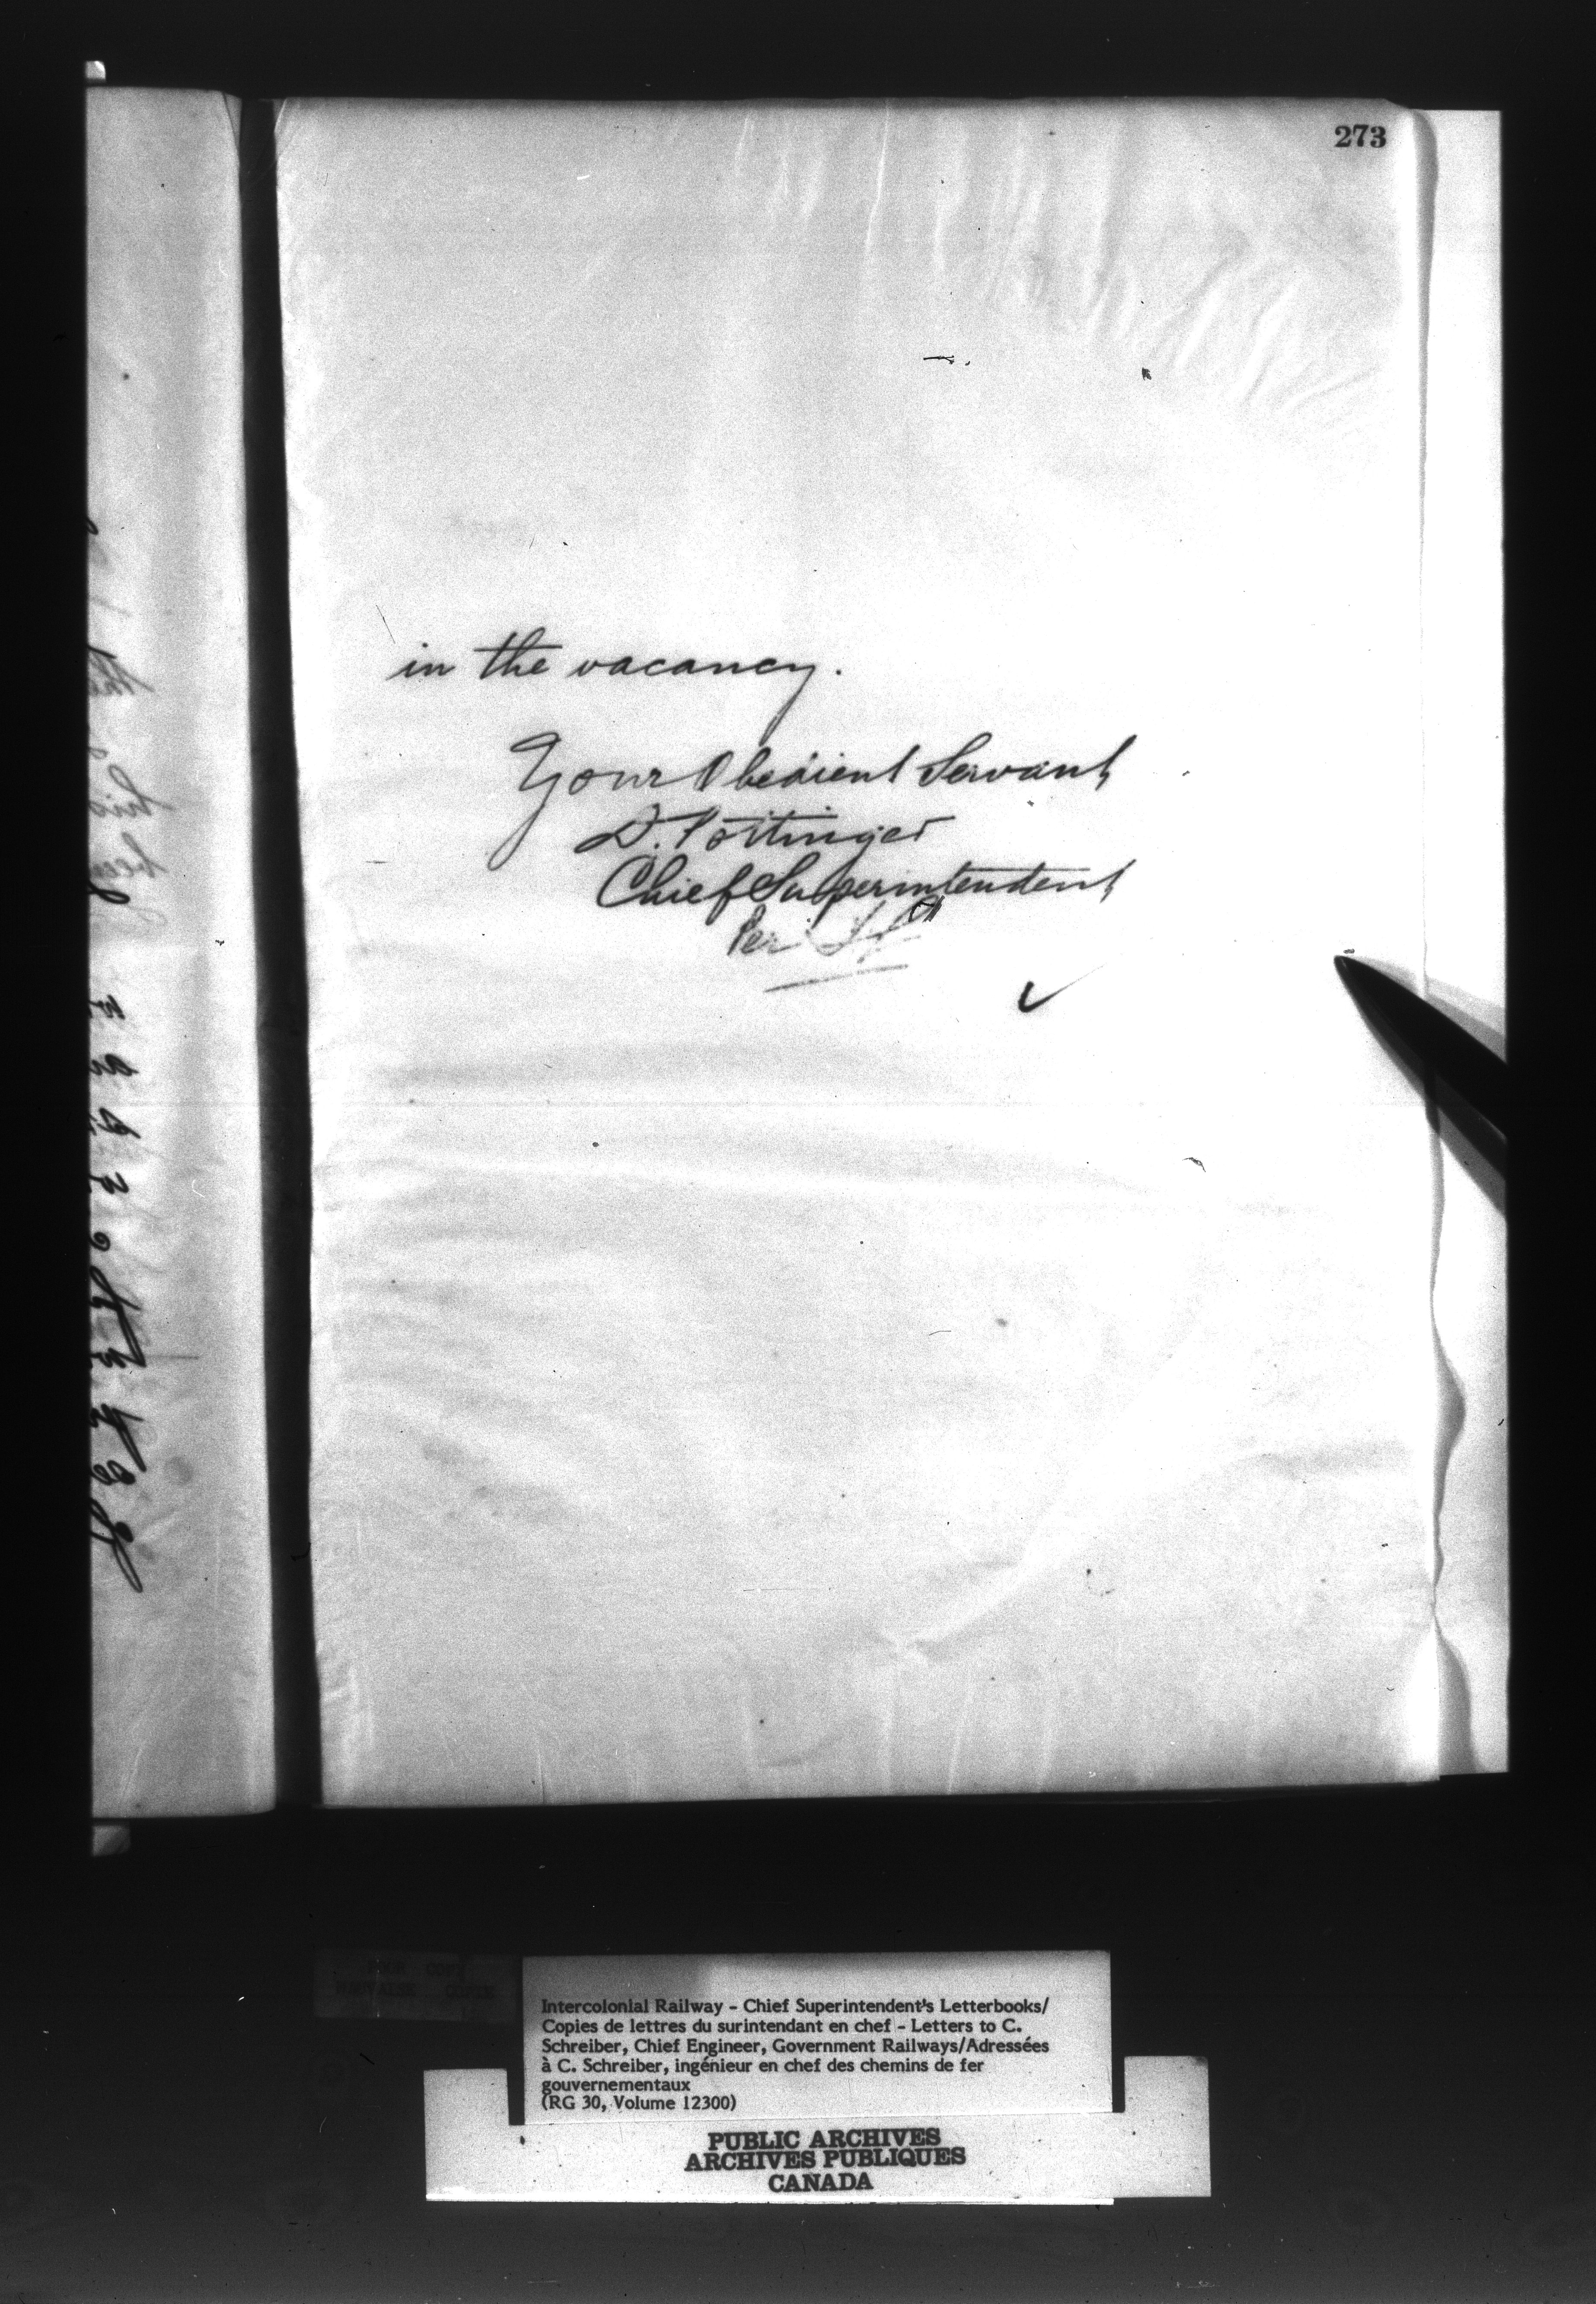 273
in the vacancy.
Your Obedient Servant
D. Pottinger
Chief Superintendent
Per
Intercolonial Railway - Chief Superintendent's Letterbooks/
Copies de lettres du surintendant en chef - Letters to C.
Schreiber, Chief Engineer, Government Railways/Adressées
à C. Schreiber, ingénieur en chef des chemins de fer
gouvernementaux
(RG 30, Volume 12300)
PUBLIC ARCHIVES
ARCHIVES PUBLIQUES
CANADA